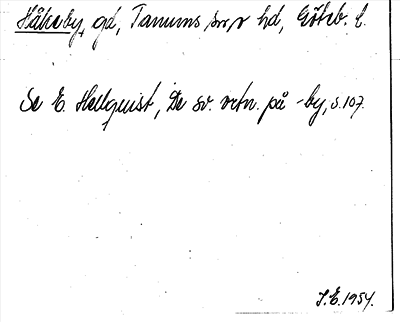 Håkeby, gd, Tanums sn, o hd, Göteb. l.
Se E. Hellquist, De sv. ortn. på -by, s. 107.
J.E. 1954.